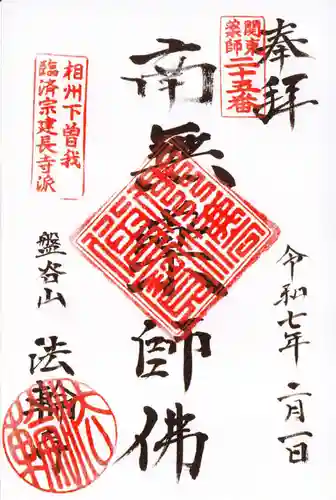 奉拝
関東
薬師 二十五番
南無薬師佛
令和七年 二月一日
相州下曽我
臨済宗建長寺派
盤谷山 法輪寺